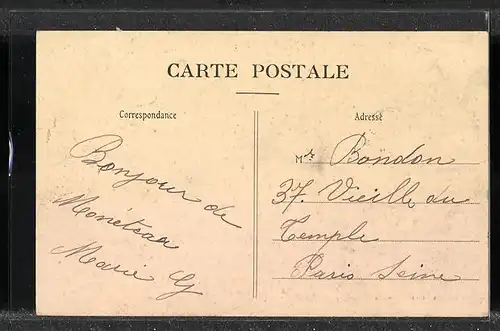 CARTE POSTALE
Correspondance
Adresse
Bonjour de
Monétau
Marie G
Mr Bondon
37. Vieille du
Temple
Paris Seine